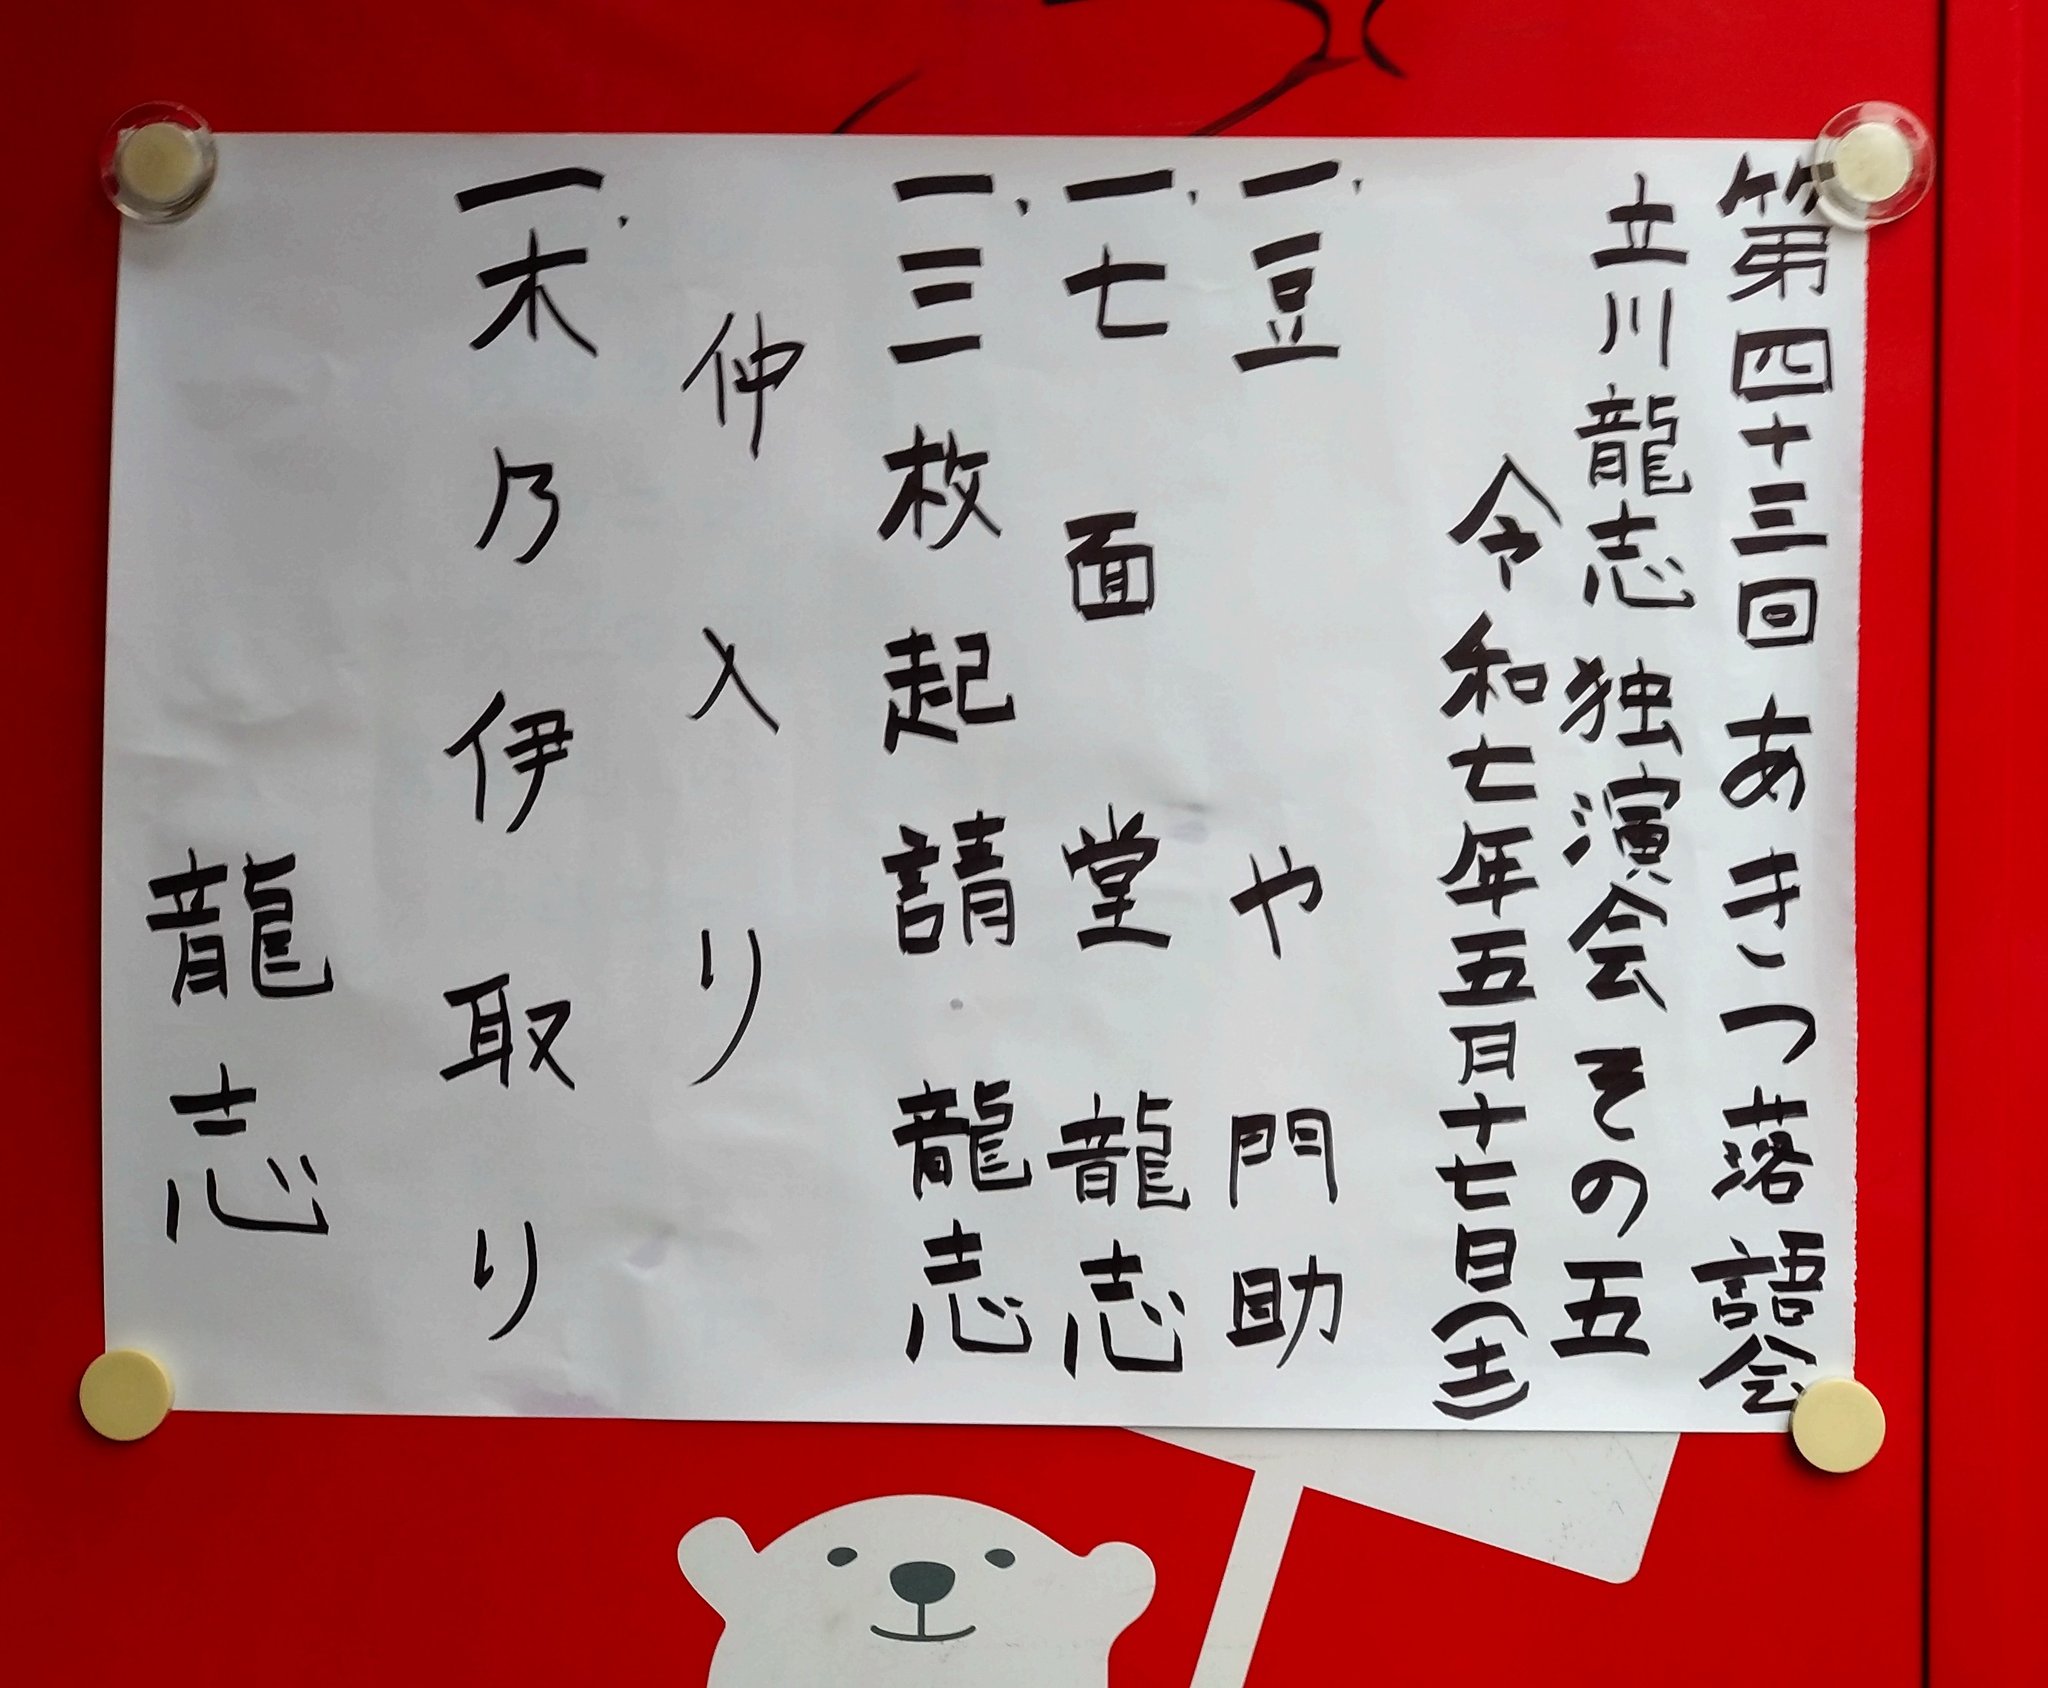 第四十三回 あきつ落語会
立川龍志 独演会 その五
令和七年五月十七日(土)
一、豆や 門助
一、七面堂 龍志
一、三枚起請 龍志
仲入り
一、木乃伊取り
龍志